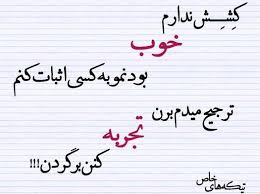 کِشِـشِش ندارم
خوب
بودنمو به کسی اثبات کنم
ترجیح میدم برن
تجربه
کنن برگردن!!!
تیکه‌های خاص